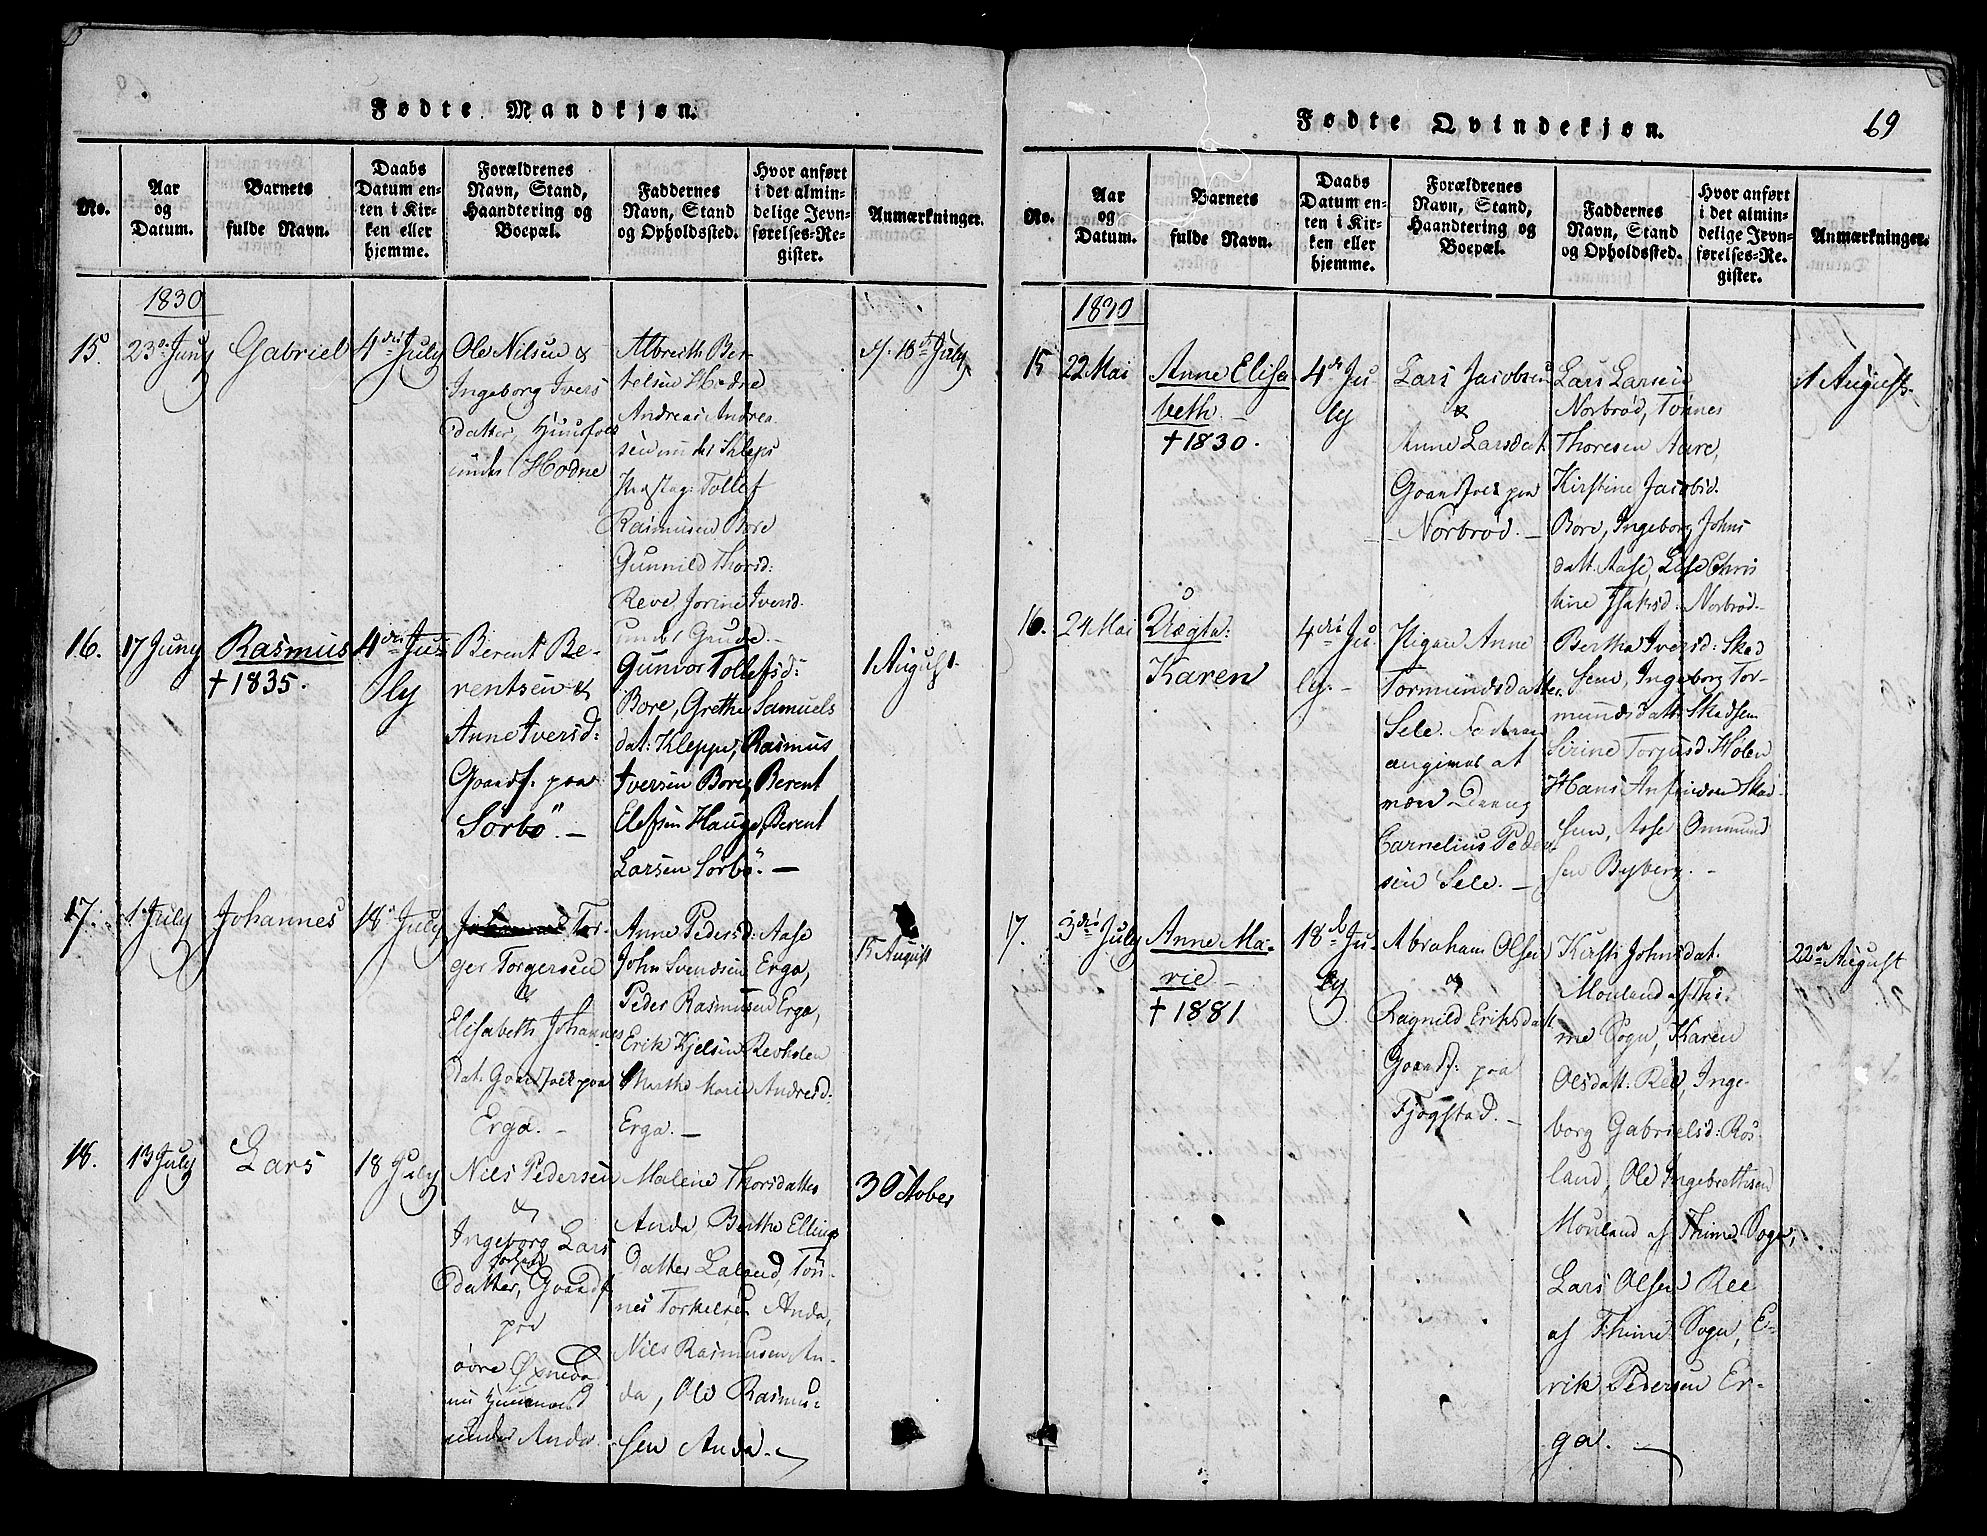 Fødte Mandkjøn.
No.
Aar
og
Datum.
Barnets
fulde Navn.
Daabs
Datum en-
ten i Kir-
ken eller
hjemme.
Forældrenes
Navn, Stand,
Haandtering og
Boepæl.
Faddernes
Navn, Stand
og Opholdssted.
Hvor anført
i det almin-
delige Jevn-
førelses-Re-
gister.
Anmærkninger.
1830
15.
23de Juny
Gabriel
4de July
Ole Nilsen &
Ingeborg Ivers
datter, Huusfolk
under Hodne
Albreith Ber-
telsen Hodne
Andreas Andrea
sen under Sleps
Præsteg: Tollef
Rasmusen Bore
Gunnild Thorsd:
Reve, Jorine Iversd.
under Grude.
18de July
16.
17 Juny
Rasmus
† 1835.
4de Ju-
ly
Berent Be-
rentsen &
Anne Iversd:
Gaardf. paa
Sørbö. —
Gunvor Tollefsd:
Bore, Grethe Samuels
dat: Kleppe, Rasmus
Iversen Bore, Berent
Elefsen Hauge, Berent
Larsen Sørbö. —
1 August.
17.
1 July
Johannes
18 July
Tor-
ger Torgersen
&
Elisabeth Johannes
dat. Gaardfolk paa
Erga. —
Anne Pedersd: Aase
John Svendsen Erga,
Peder Rasmusen Erga,
Erik Kjelsen Revholen
Marthe Marie Andresd:
Erga. —
15 August
18.
13 July
Lars
18 July
Nils Pedersen
&
Ingeborg Lars
datter, Gaardf
paa
øvre Øxneva
nu Huusmand
under Anda.
Malene Thorsdatter
Anda, Berthe Ellings
datter Laland, Tøn-
nes Torkelsen Anda,
Nils Rasmusen An-
da, Ole Rasmu-
sen Anda. —
3 October
Fødte Qvindekjøn.
69
No.
Aar
og
Datum.
Barnets
fulde Navn.
Daabs
Datum en-
ten i Kir-
ken eller
hjemme.
Forældrenes
Navn, Stand,
Haandtering og
Boepæl.
Faddernes
Navn, Stand
og Opholdssted.
Hvor anført
i det almin-
delige Jevn-
førelses-Re-
gister.
Anmærkninger.
1830
15
22 Mai
Anne Elisa
beth. —
† 1830.
4de Ju-
ly
Lars Jacobsen
&
Anne Larsdat.
Gaardfolk paa
Norbrød. —
Lars Larsen
Norbrød, Tønnes
Thoresen Aare,
Kirstine Jacobsd.
Bore, Ingeborg Johns
datt. Aase, Lise Chris
tine Isaksd. Norbrød.
1 August
16.
24 Mai
Uægte:
Karen
4de Ju
ly. —
Pigen Anne
Tormundsdatter
Sele. Faderen
angives at
være Dreng
Cornelius Peder
sen Sele. —
Bertha Iversd: Skad
sem, Ingeborg Tor-
mundsdatt. Skadsem
Serine Torjusd: Holen
Hans Anfindsen Skad-
sem, Aase Ommund
sen Byberg. —
17.
3die July
Anne Ma-
rie —
† 1881
18de Ju-
ly
Abraham Olsen
&
Ragnild Eriksdatt
Gaardf. paa
Fjogstad. —
Kirsti Johnsdat.
Mouland af Thi-
me Sogn, Karen
Olsdatt. Ree, Inge-
borg Gabrielsd: Ros-
land, Ole Ingebrettsen
Mouland af Thime Sogn,
Lars Olsen Ree
af Thime Sogn, E-
rik Pedersen Er-
ga. —
22de August